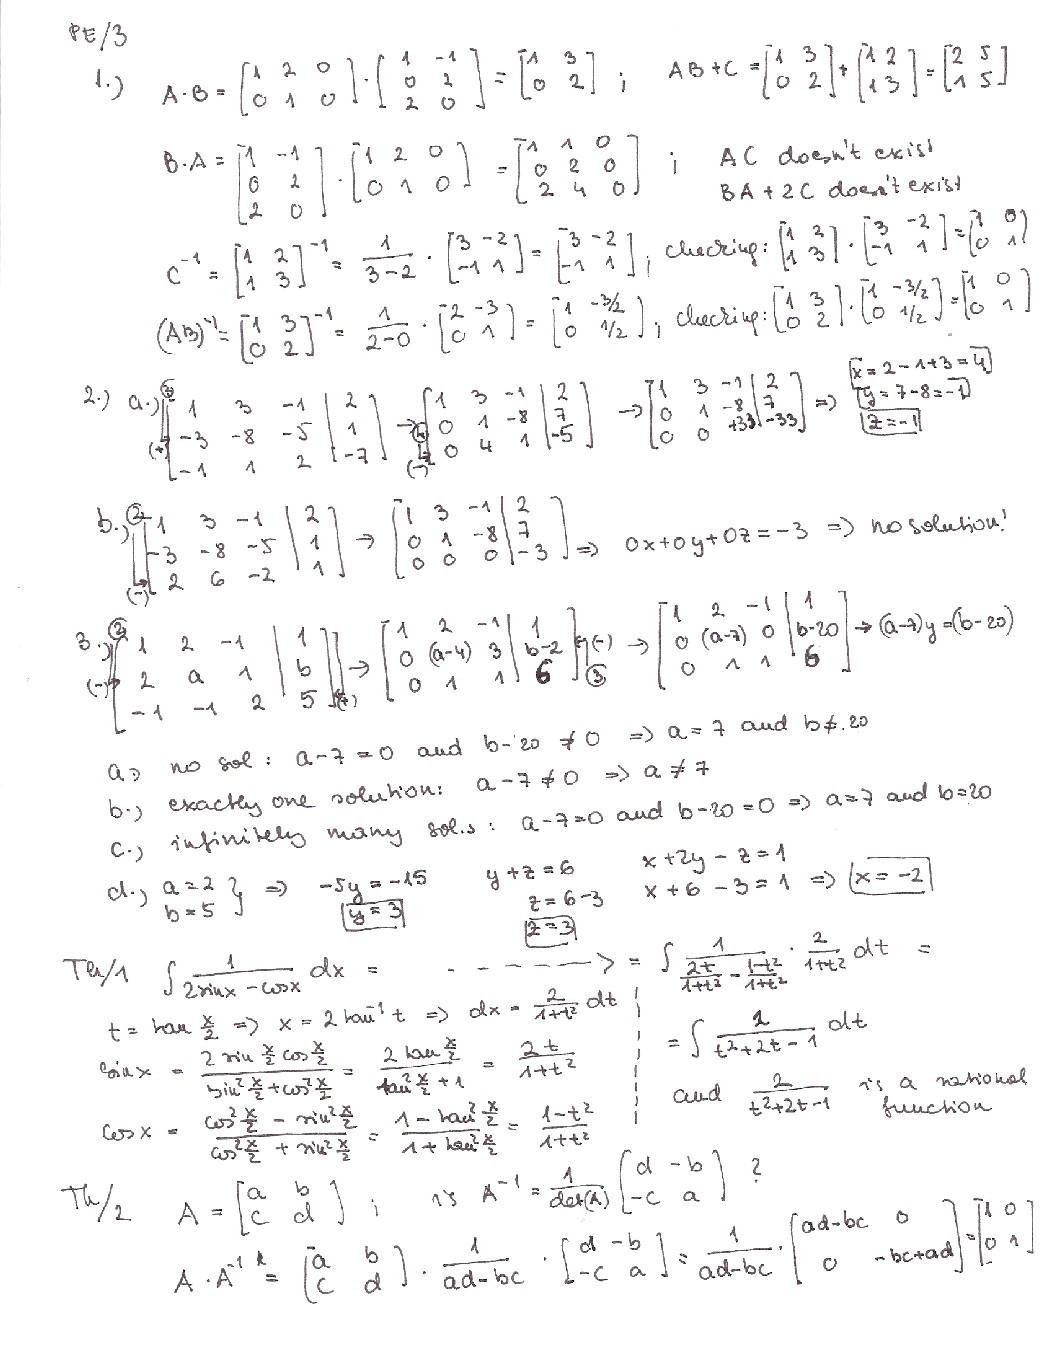 PE/3
1.) A·B = [1 2 0; 0 1 0] · [1 -1; 0 2; 2 0] = [1 3; 0 2] ; AB+C = [1 3; 0 2] + [1 2; 1 3] = [2 5; 1 5]
B·A = [1 -1; 0 2; 2 0] · [1 2 0; 0 1 0] = [1 1 0; 0 2 0; 2 4 0] ; AC doesn't exist
BA + 2C doesn't exist
C^-1 = [1 2; 1 3]^-1 = 1/(3-2) · [3 -2; -1 1] = [3 -2; -1 1] ; checking: [1 2; 1 3] · [3 -2; -1 1] = [1 0; 0 1]
(AB)^-1 = [1 3; 0 2]^-1 = 1/(2-0) · [2 -3; 0 1] = [1 -3/2; 0 1/2] ; checking: [1 3; 0 2] · [1 -3/2; 0 1/2] = [1 0; 0 1]
2.) a.) ③ (+) [1 3 -1 | 2; -3 -8 -5 | 1; -1 1 2 | -7] → ④ (-) [1 3 -1 | 2; 0 1 -8 | 7; 0 4 1 | -5] → [1 3 -1 | 2; 0 1 -8 | 7; 0 0 +33 | -33] ⇒ x = 2-1+3 = 4
y = 7-8 = -1
z = -1
b.) ② (-) [1 3 -1 | 2; -3 -8 -5 | 1; 2 6 -2 | 1] → [1 3 -1 | 2; 0 1 -8 | 7; 0 0 0 | -3] ⇒ 0x+0y+0z = -3 ⇒ no solution!
3.) ② (-) [1 2 -1 | 1; 2 a 1 | b; -1 -1 2 | 5] (+) → [1 2 -1 | 1; 0 (a-4) 3 | b-2; 0 1 1 | 6] (-) ③ → [1 2 -1 | 1; 0 (a-7) 0 | b-20; 0 1 1 | 6] → (a-7)y = (b-20)
a.) no sol: a-7 = 0 and b-20 ≠ 0 ⇒ a = 7 and b ≠ 20
b.) exactly one solution: a-7 ≠ 0 ⇒ a ≠ 7
c.) infinitely many sol.s: a-7=0 and b-20=0 ⇒ a=7 and b=20
d.) a=2 b=5 } ⇒ -5y = -15 y+z=6 x+2y-z=1
y = 3 z = 6-3 x+6-3=1 ⇒ x = -2
z = 3
Th/1 ∫ 1/(2sinx - cosx) dx = - - - - - - - > = ∫ 1/(2t/(1+t²) - (1-t²)/(1+t²)) · 2/(1+t²) dt =
t = tan x/2 ⇒ x = 2 tan^-1 t ⇒ dx = 2/(1+t²) dt
= ∫ 2/(t²+2t-1) dt
sinx = (2 sin x/2 cos x/2)/(sin² x/2 + cos² x/2) = (2 tan x/2)/(tan² x/2 + 1) = 2t/(1+t²)
and 2/(t²+2t-1) is a rational function
cosx = (cos² x/2 - sin² x/2)/(cos² x/2 + sin² x/2) = (1 - tan² x/2)/(1 + tan² x/2) = (1-t²)/(1+t²)
Th/2 A = [a b; c d] ; is A^-1 = 1/det(A) [d -b; -c a] ?
A·A^-1 = [a b; c d] · 1/(ad-bc) · [d -b; -c a] = 1/(ad-bc) · [ad-bc 0; 0 -bc+ad] = [1 0; 0 1]